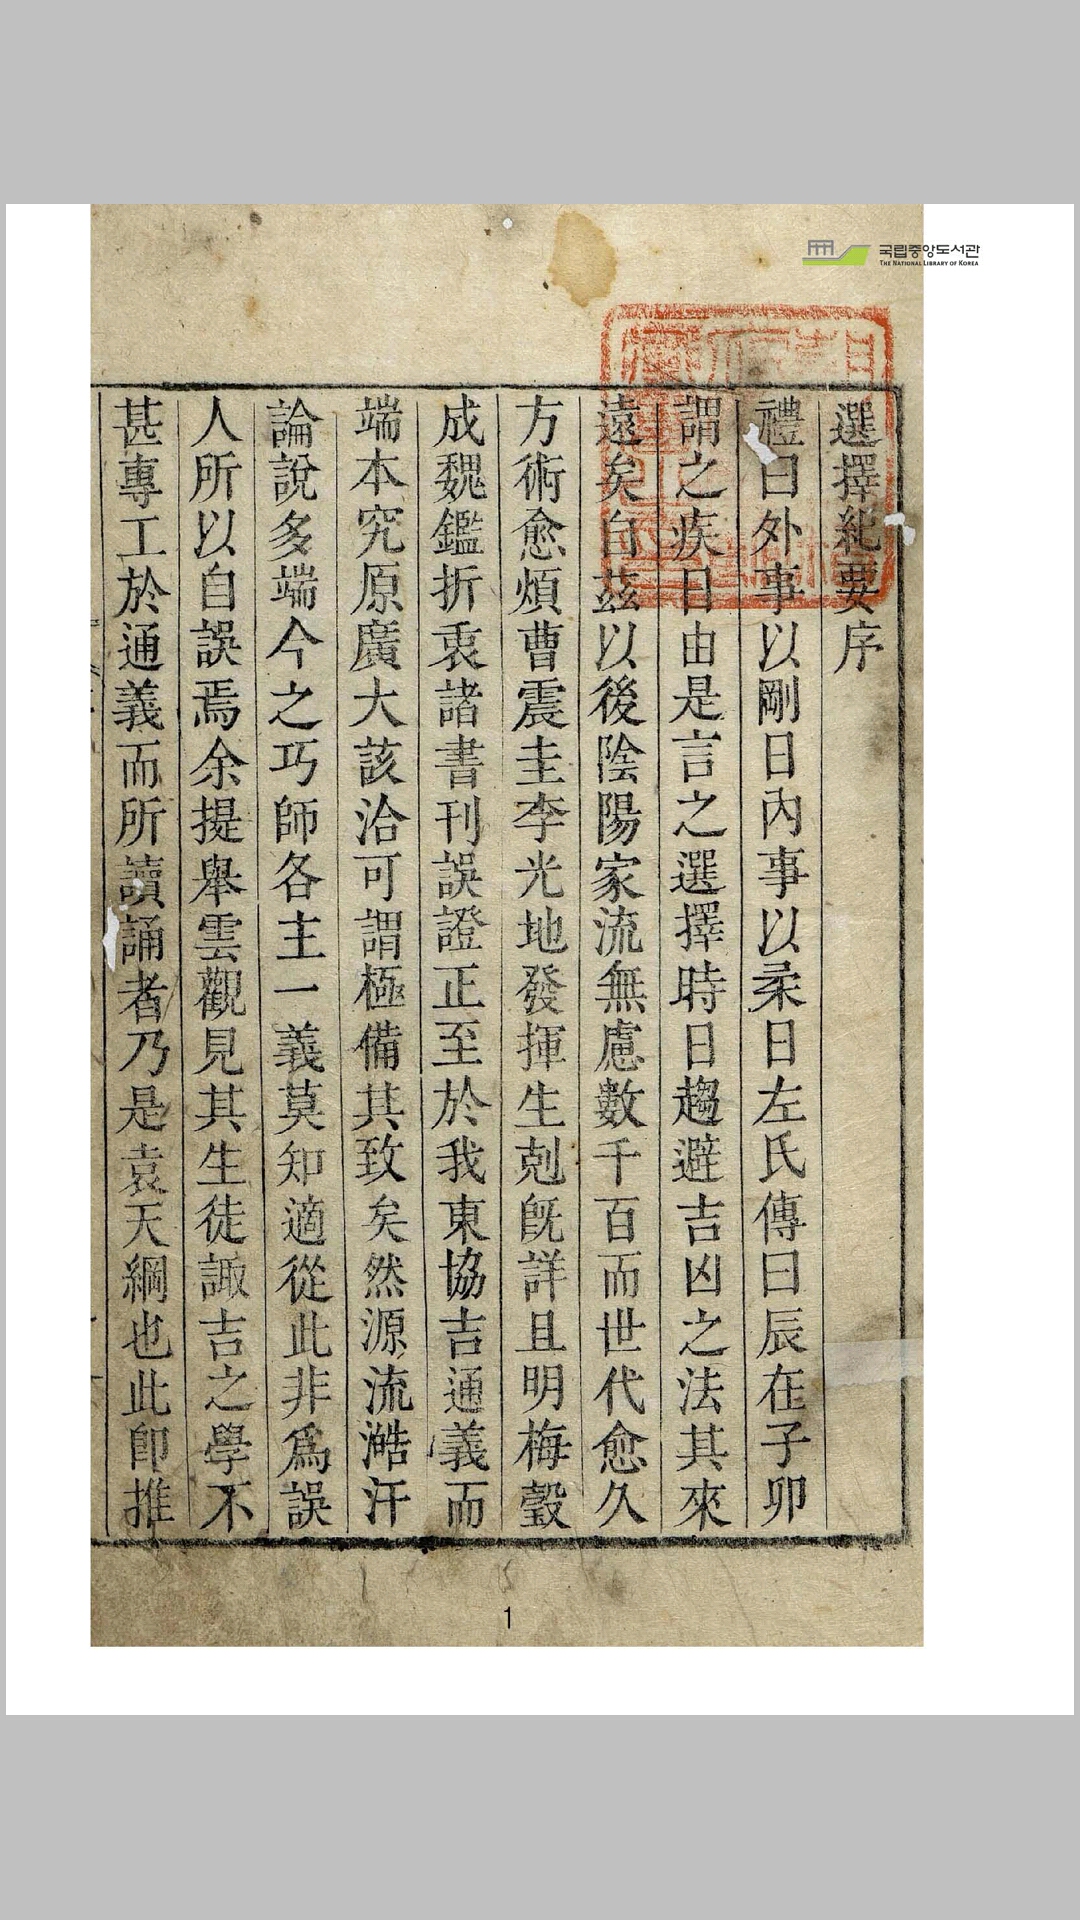 국립중앙도서관
THE NATIONAL LIBRARY OF KOREA
選擇紀要序
禮曰外事以剛日內事以柔日左氏傳曰辰在子卯
謂之疾日由是言之選擇時日趨避吉凶之法其來
遠矣自茲以後陰陽家流無慮數千百而世代愈久
方術愈煩曹震圭李光地發揮生剋旣詳且明梅瑴
成魏鑑折衷諸書刊誤證正至於我東協吉通義而
端本究原廣大該洽可謂極備其致矣然源流澔汗
論說多端今之巧師各主一義莫知適從此非爲誤
人所以自誤焉余提舉雲觀見其生徒諏吉之學不
甚專工於通義而所讀誦者乃是袁天綱也此卽推
1